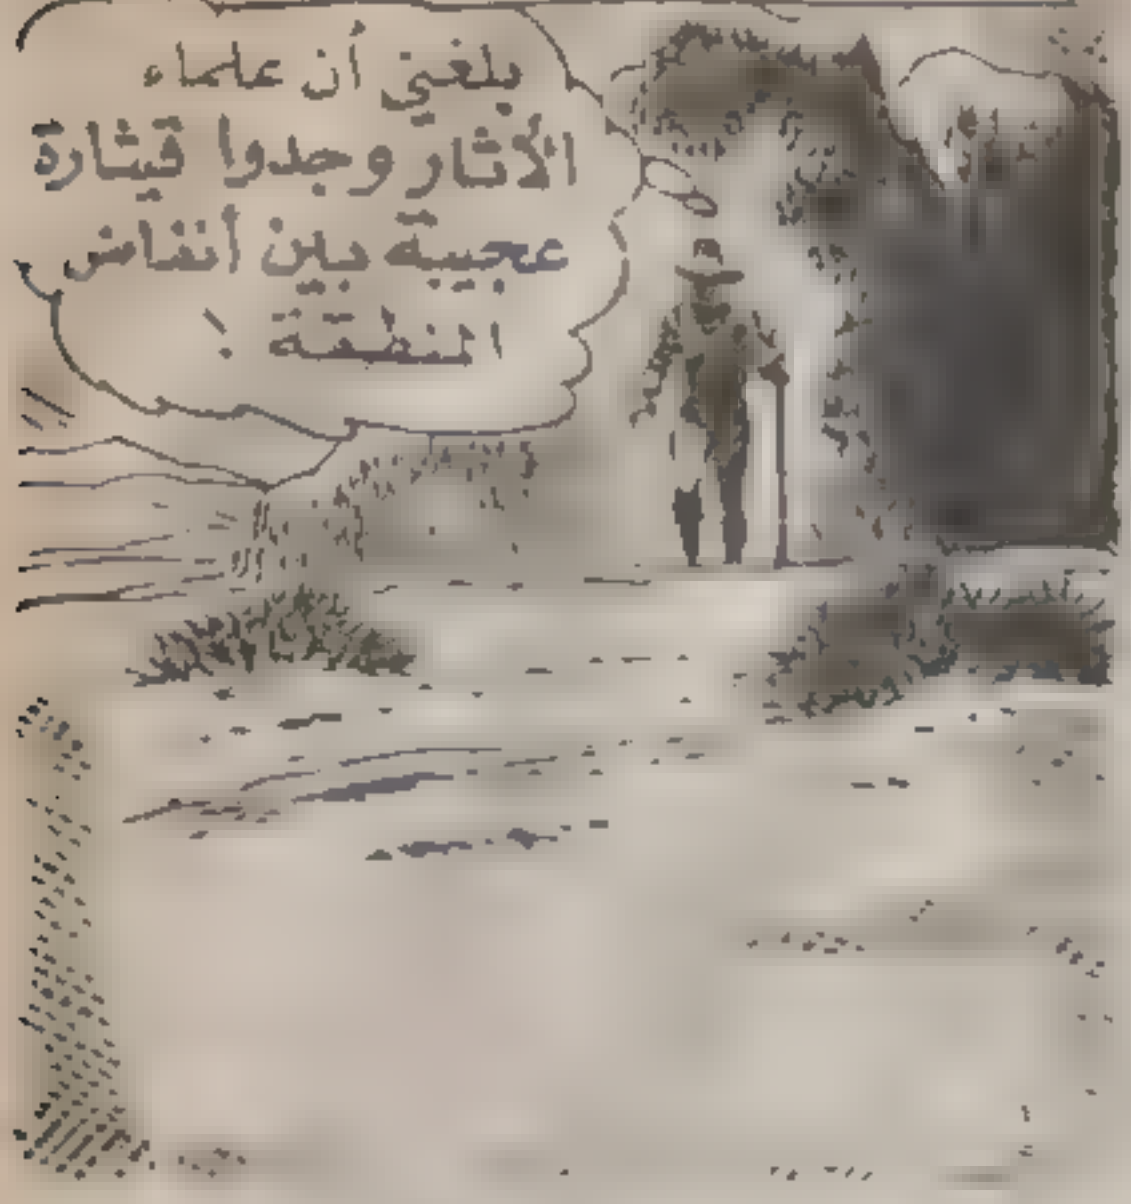 بلغني أن علماء
الآثار وجدوا قيثارة
عجيبة بين أنقاض
المنطقة !